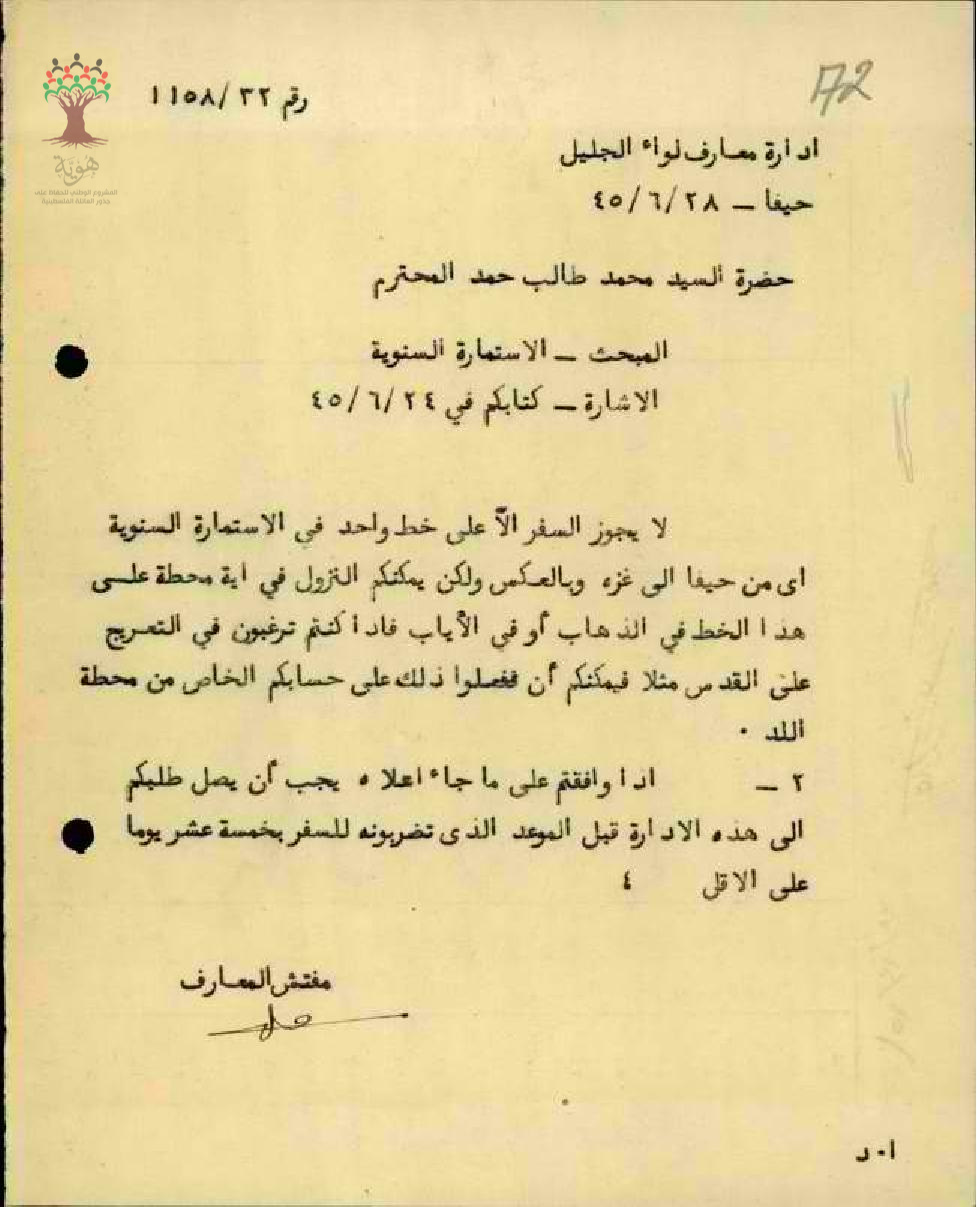 172
رقم ٣٢/ ١١٥٨
هوية
المشروع الوطني للحفاظ على
جذور العائلة الفلسطينية
ادارة معارف لواء الجليل
حيفا – ٤٥/٦/٢٨
حضرة السيد محمد طالب حمد المحترم
المبحث – الاستمارة السنوية
الاشارة – كتابكم في ٤٥/٦/٢٤
لا يجوز السفر الاّ على خط واحد في الاستمارة السنوية
اى من حيفا الى غزه وبالعكس ولكن يمكنكم النزول في اية محطة علـى
هذا الخط في الذهاب أو في الأياب فاذا كنتم ترغبون في التعريج
على القدس مثلا فيمكنكم أن تفعلوا ذلك على حسابكم الخاص من محطة
اللد ٠
٢ – اذا وافقتم على ما جاء اعلاه يجب أن يصل طلبكم
الى هذه الادارة قبل الموعد الذى تضربونه للسفر بخمسة عشر يوما
على الاقل ٤
مفتش المعارف
ا٠د